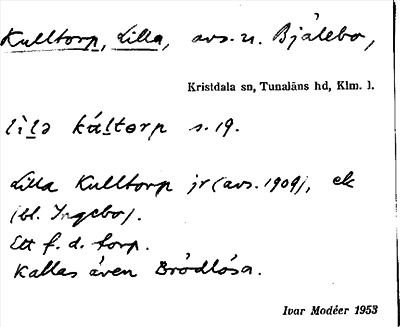 Kulltorp, Lilla, avs. u. Bjälebo,
Kristdala sn, Tunaläns hd, Klm. l.
lìlə kúltɵrp s. 19.
Lilla Kulltorp jr (avs. 1909), ek
(bl. Ingebo).
Ett f. d. torp.
Kallas även Brödlösa.
Ivar Modéer 1953